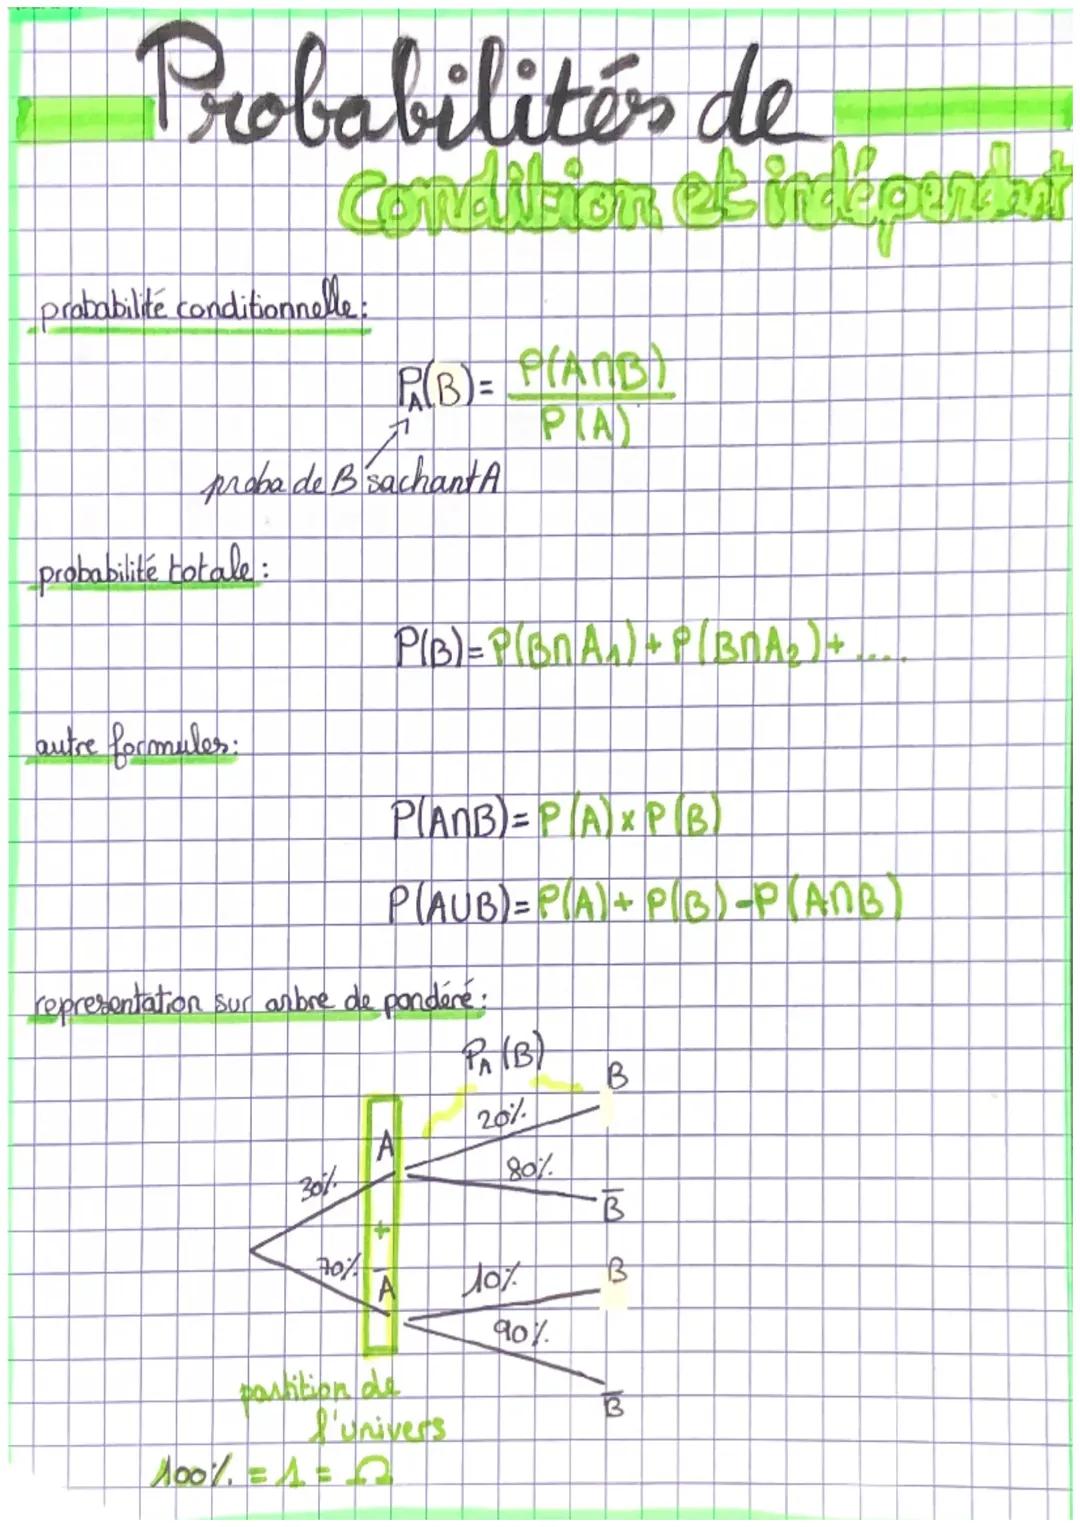 Probabilités de
condition et indépendant
probabilité conditionnelle:
P_A(B) = P(A∩B) / P(A)
proba de B sachant A
probabilité totale:
P(B) = P(B∩A₁) + P(B∩A₂) + ....
autre formules:
P(A∩B) = P(A) x P(B)
P(A∪B) = P(A) + P(B) - P(A∩B)
representation sur arbre de pondéré:
P_A(B)
B
20%
A
80%
30%
B̅
+
70%
A̅
10%
B
90%
B̅
partition de
l'univers
100% = 1 = Ω